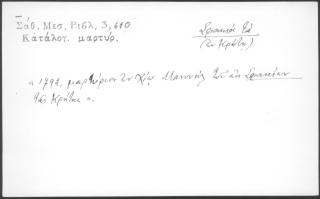 Σάθ. Μεσ. Βιβλ. 3, 610
Κατάλογ. μαρτύρ.
Σφακιά τά
(τῆς Κρήτης)
« 1792, μαρτύριον ἐν Χίῳ Μανουήλ τοῦ ἐκ Σφακίων
τῆς Κρήτης ».